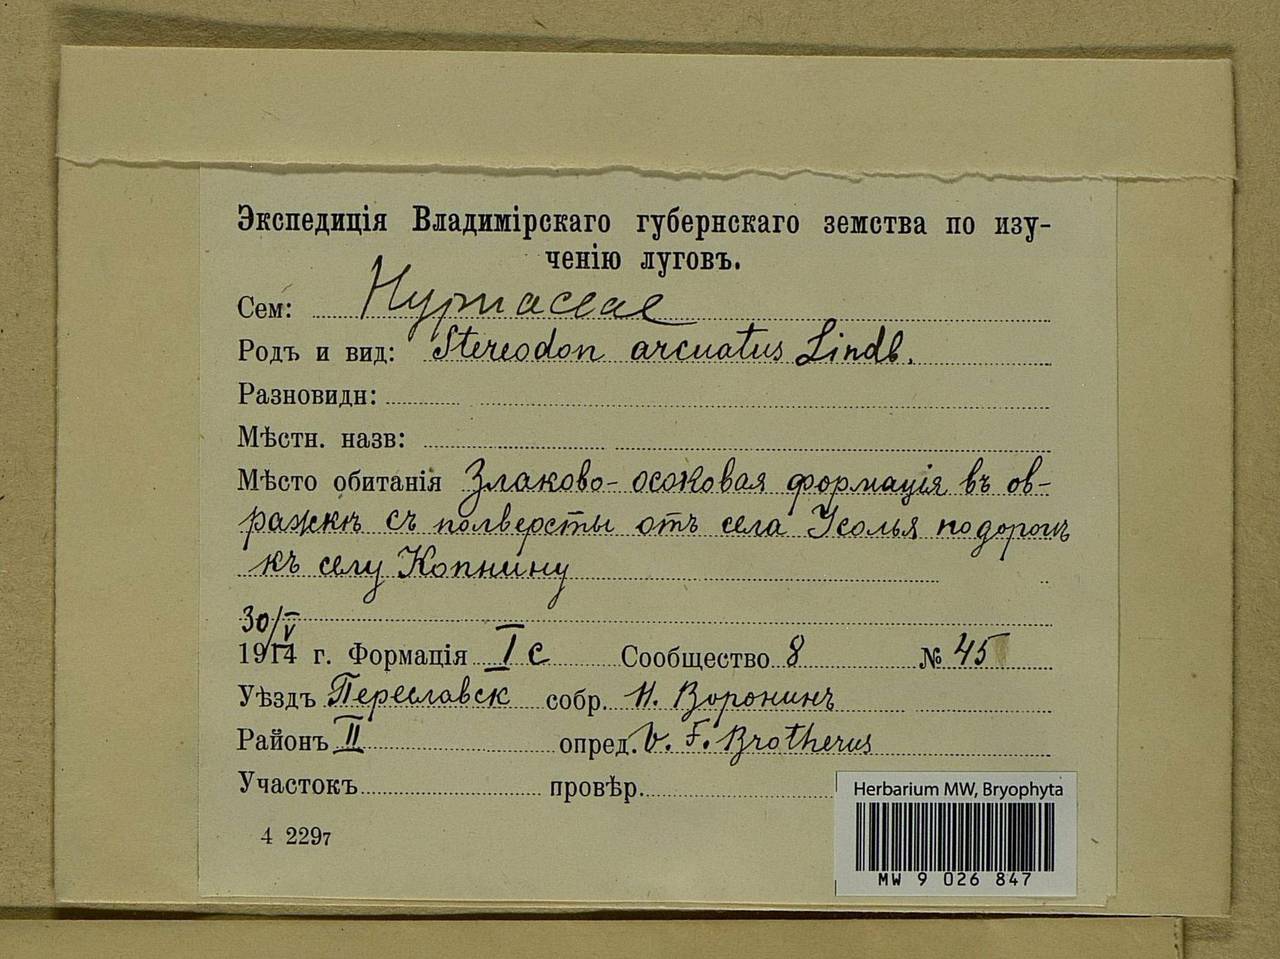 Экспедиція Владимірскаго губернскаго земства по изу-
ченію луговъ.
Сем: Hypnaceae
Родъ и вид: Stereodon arcuatus Lindb.
Разновидн:
Мѣстн. назв:
Мѣсто обитанія Злаково-осоковая формація въ ов-
ражкѣ съ полверсты отъ села Усолья по дорогѣ
къ селу Копнину
30/V
1914 г. Формація I c Сообщество 8 № 45
Уѣздъ Переславск собр. Н. Воронинъ
Районъ II опред. V. F. Brotherus
Участокъ провѣр.
4 2297
Herbarium MW, Bryophyta
MW 9 026 847